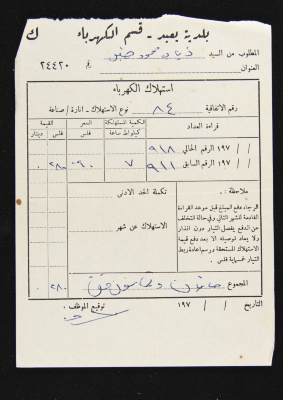 بلدية يعبد - قسم الكهرباء ك
المطلوب من السيد ذياب محمود
العنوان م ٢٤٤٢٠
استهلاك الكهرباء
رقم الاتفاقية ٨٤ نوع الاستهلاك - انارة / صناعة
قراءة العداد الكمية المستهلكة كيلواط ساعة السعر فلس القيمة فلس دينار
/ / ١٩٧ الرقم الحالي ٩١٨
/ / ١٩٧ الرقم السابق ٩١١ ٧ ٠٤٠ ٢٨٠ ٠
ملاحظة :
الرجاء دفع المبلغ قبل موعد القراءة
القادمة للشهر التالي وفي حالة التخلف
عن الدفع يفصل التيار دون انذار
ولا يعاد توصيله الا بعد دفع قيمة
الاستهلاك المستحقة ورسم اعادة ربط
التيار خمسماية فلس
تكملة الحد الادنى
الاستهلاك عن شهر
المجموع مائتان وثمانون فلس فقط ٢٨٠ ٠
التاريخ / / ١٩٧ توقيع الموظف